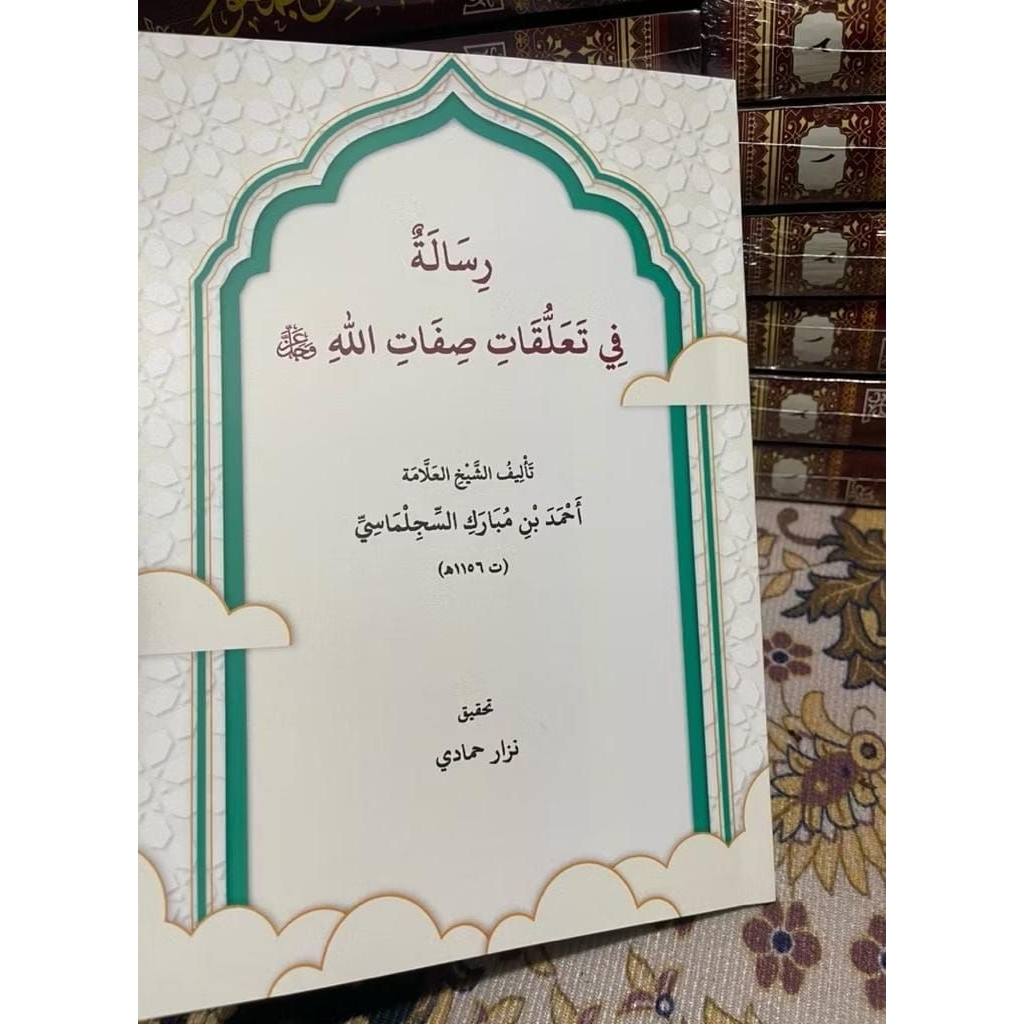 رِسَالَةٌ
فِي تَعَلُّقَاتِ صِفَاتِ اللهِ عَزَّ وَجَلَّ
تَأْلِيفُ الشَّيْخِ العَلَّامَة
أَحْمَدَ بْنِ مُبَارَكِ السِّجِلْمَاسِيِّ
(ت ١١٥٦هـ)
تحقيق
نزار حمادي
٢
١
٢
١
٢
١